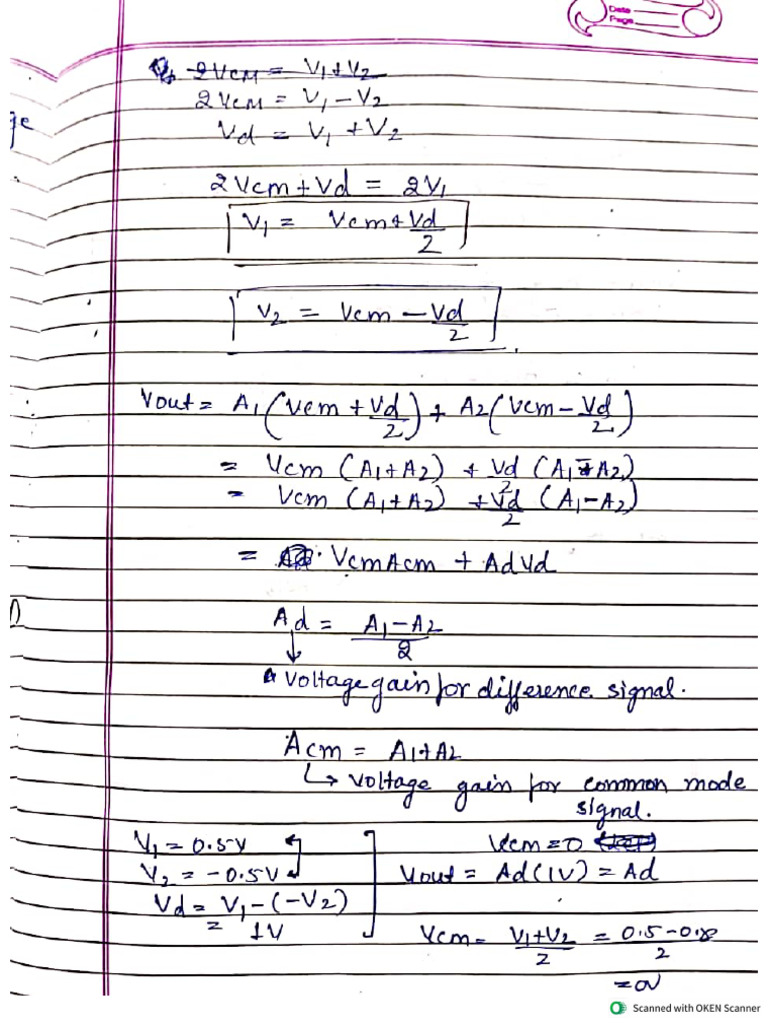 Date
Page
ge
2Vcm = V1+V2
2Vcm = V1 - V2
Vd = V1 + V2
2Vcm + Vd = 2V1
V1 = Vcm + Vd/2
V2 = Vcm - Vd/2
Vout = A1 (Vcm + Vd/2) + A2 (Vcm - Vd/2)
= Vcm (A1+A2) + Vd/2 (A1 + A2)
= Vcm (A1+A2) + Vd/2 (A1 - A2)
= VcmAcm + AdVd
Ad = A1 - A2/2
Voltage gain for difference signal.
Acm = A1+A2
↳ voltage gain for common mode
signal.
V1 = 0.5V Vcm = 0
V2 = -0.5V Vout = Ad(1V) = Ad
Vd = V1 - (-V2)
= 1V
Vcm = V1+V2/2 = 0.5-0.5/2
= 0V
Scanned with OKEN Scanner